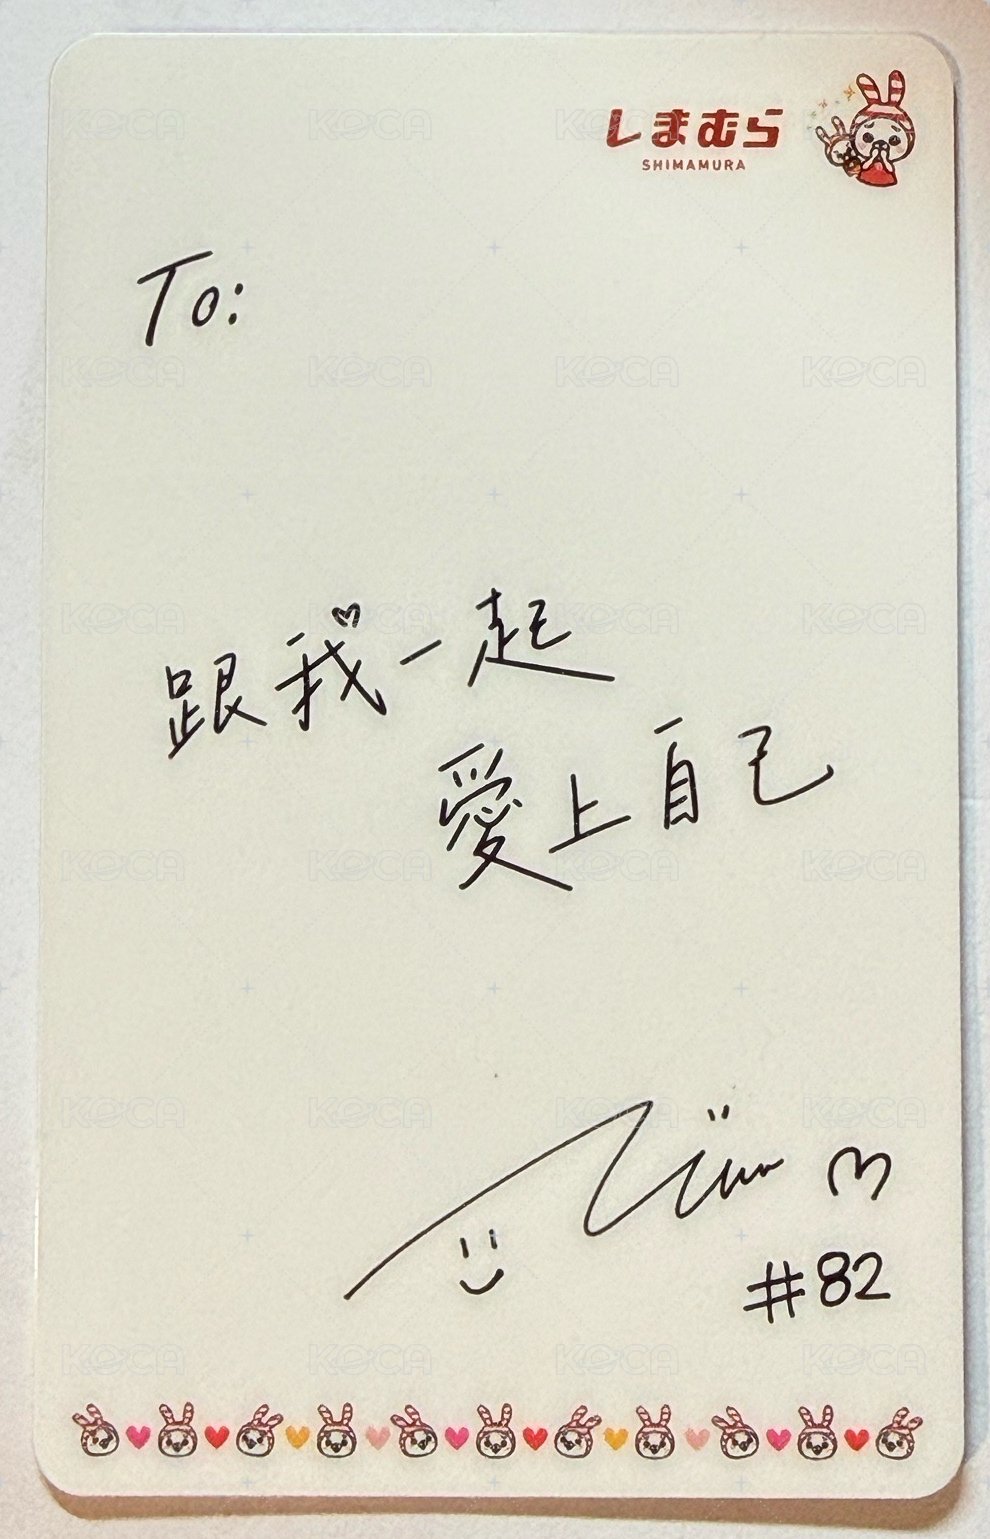 しまむら
SHIMAMURA
To:
跟我一起
愛上自己
#82
KOCA